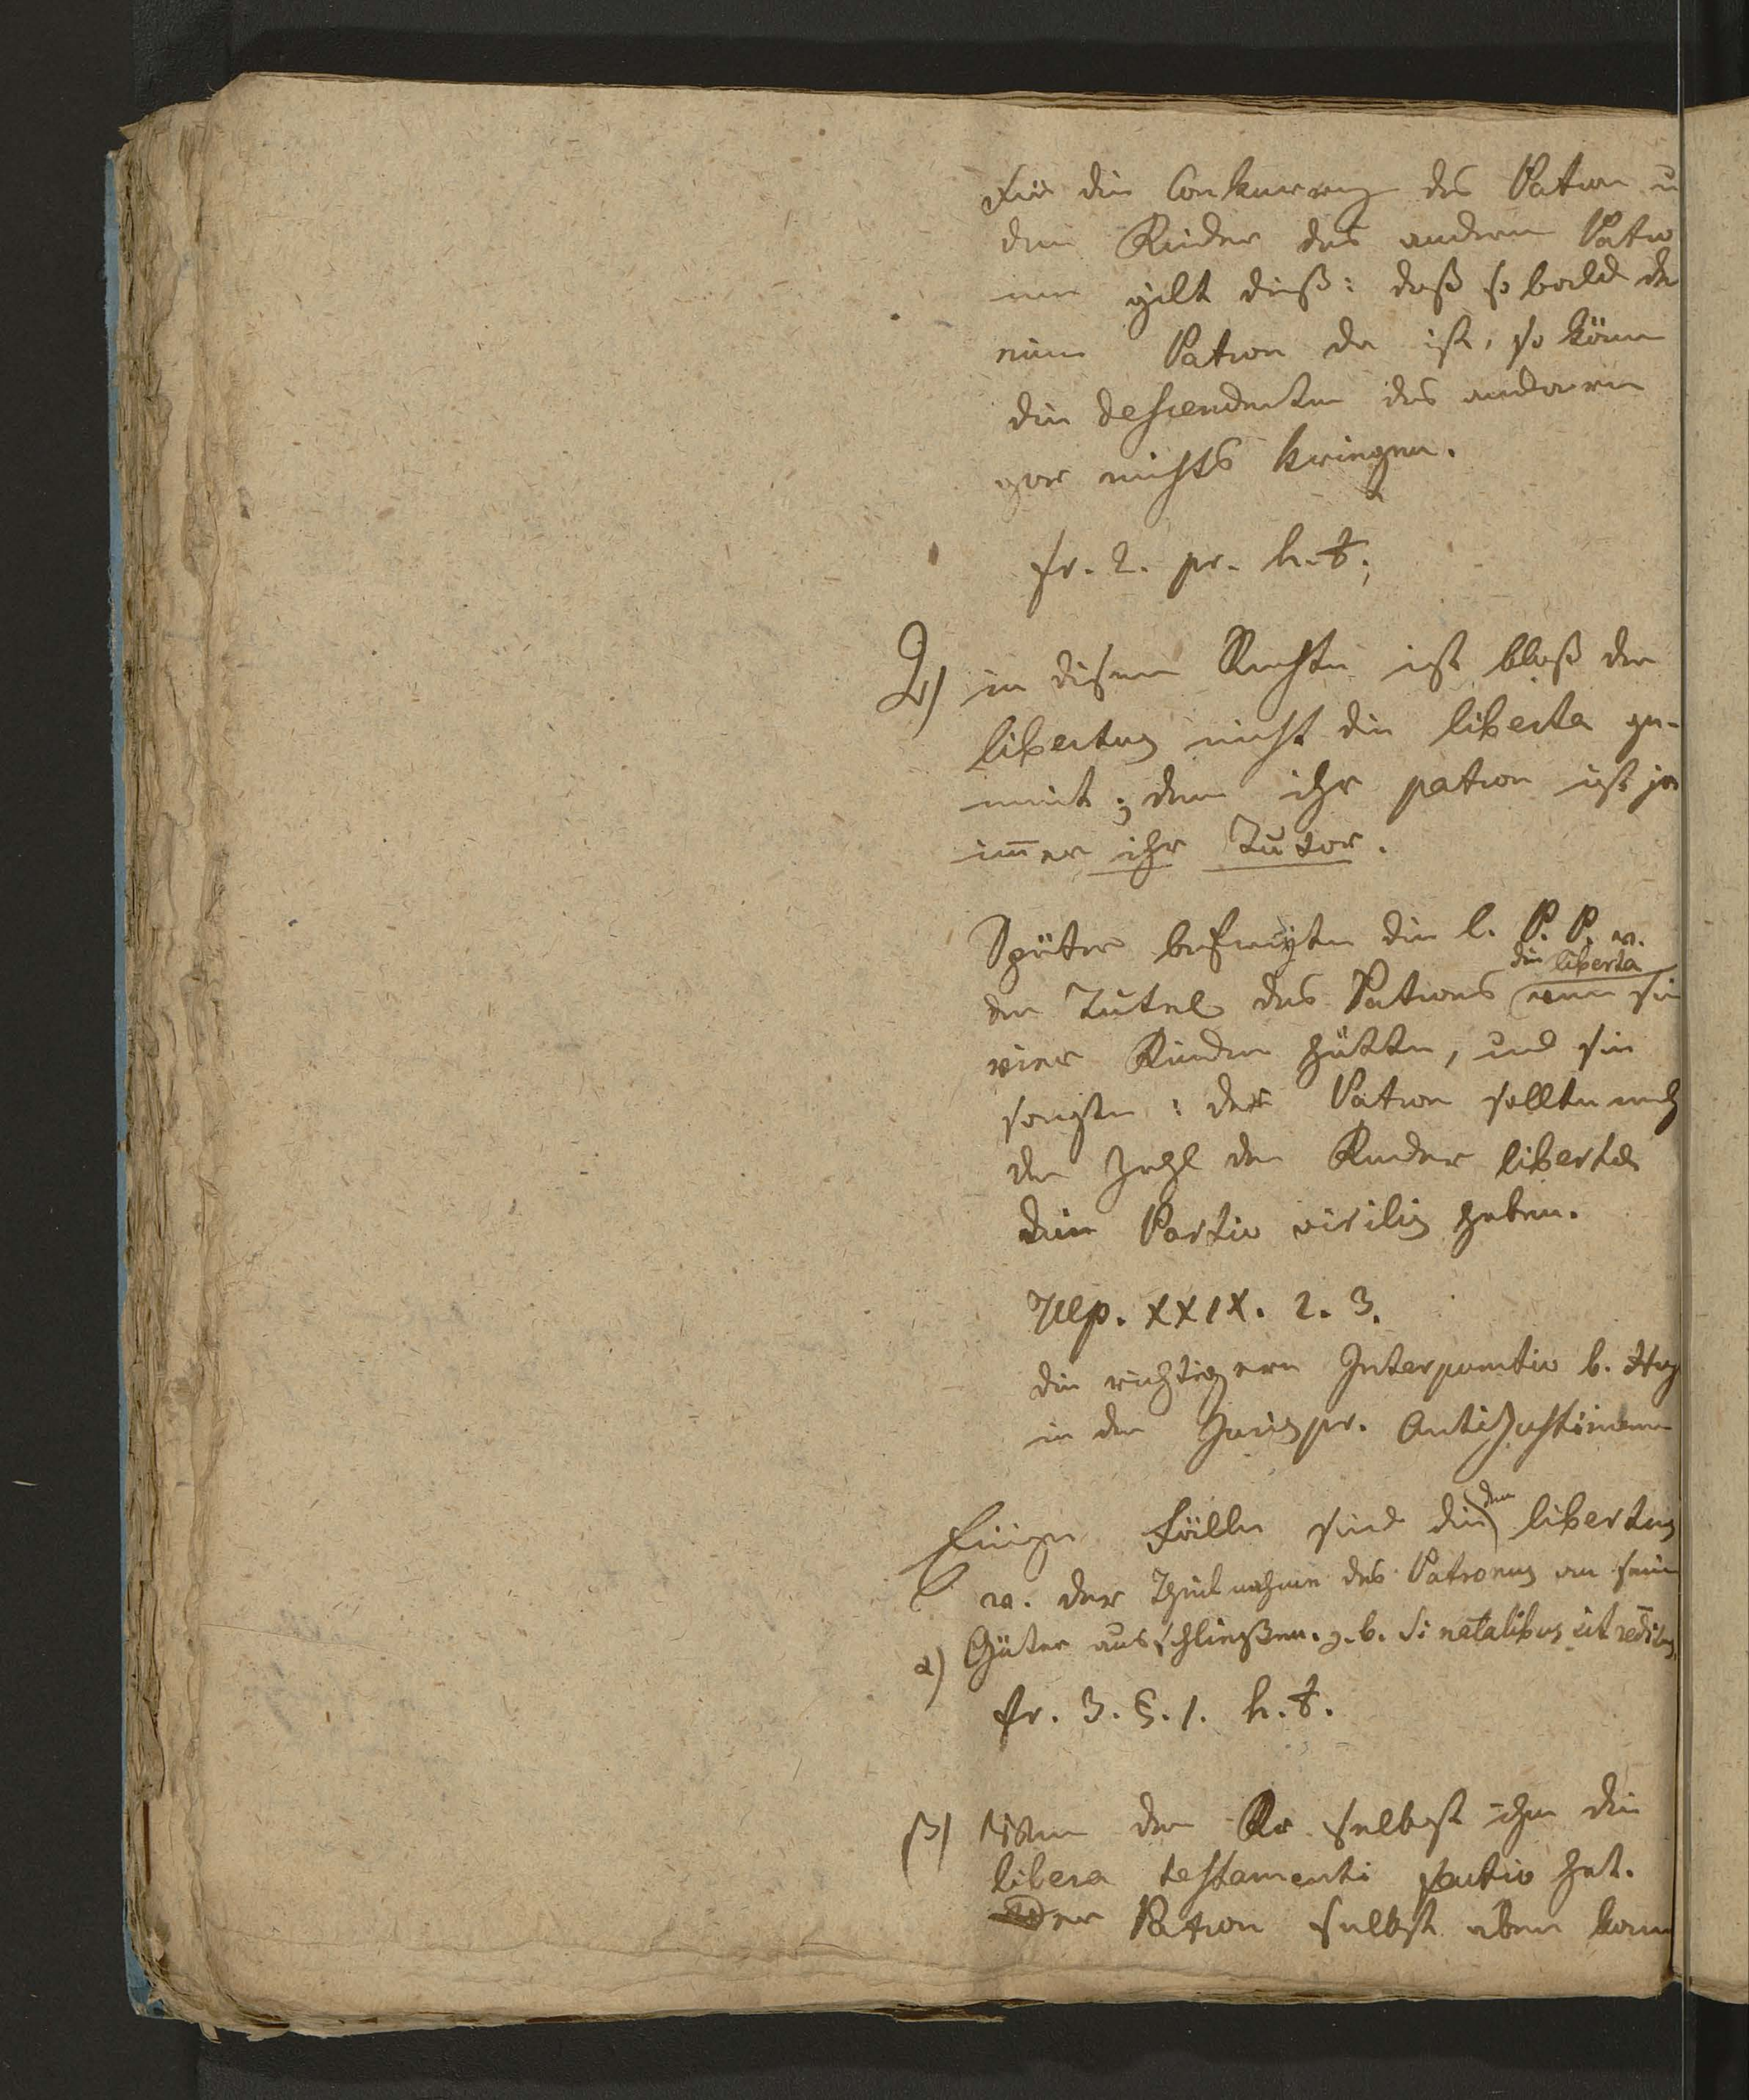 Für die Conkurrenz des Patron u
den Kinder des andern Patro
nen gilt dieß: daß so bald der
eine Patron da ist, so könn
die descendenten des anderen
gar nichts kriegen.
fr. 2. pr. h. t.;
2) in disem Rechte ist bloß der
libertus nicht die liberta ge-
meint; denn ihr patron ist ja
im̄er ihr Tutor.
Später befreyte die l. P. P. v.
die liberta
der Tutel des Patrons wenn sie
vier Kinder hätte, und sie
sagte: der Patron sollte nach
der Zahl der Kinder libertae
eine Portio virilis haben.
Ulp. XXIX. 2. 3.
die richtigern Interpunctio b. Hug
in der Jurispr. Antijustinianea
den
Einige Fälle sind die libertus
v. der Theilnahme des Patronus an seine
α) Güter ausschließen. z. b. si natalibus sit redditus
fr. 3. §. 1. h. t.
β) Wenn der selbst ihm die
libera testamenti factio hat.
Der Patron selbst aber kann